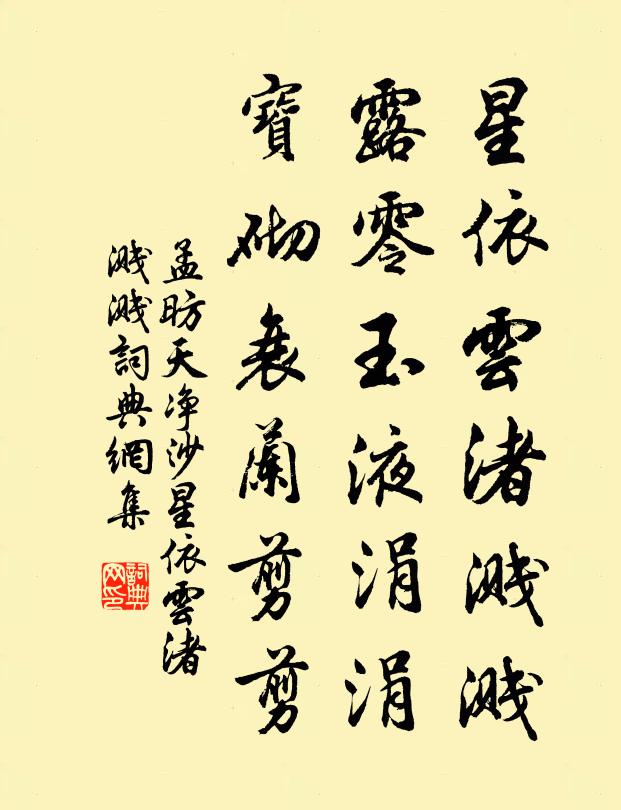 星依雲渚濺濺
露零玉液涓涓
寶砌衰蘭剪剪
孟昉天净沙星依雲渚
濺濺詞典網集
詞典
网印